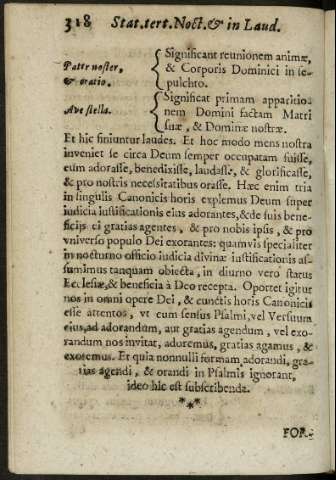 318 Stat. tert. Noct. & in Laud.
Pater noster, & oratio.
Significant reunionem animæ,
& Corporis Dominici in se-
pulchro.
Ave stella.
Significat primam apparitio-
nem Domini factam Matri
suæ, & Dominæ nostræ.
Et hic finiuntur laudes. Et hoc modo mens nostra
inveniet se circa Deum semper occupatam fuisse,
eum adorasse, benedixisse, laudasse, & glorificasse,
& pro nostris necessitatibus orasse. Hæc enim tria
in singulis Canonicis horis explemus Deum super
iudicia iustificationis eius adorantes, & de suis bene-
ficijs ei gratias agentes, & pro nobis ipsis, & pro
vniverso populo Dei exorantes: quamvis specialiter
in nocturno officio iudicia divinæ iustificationis as-
sumimus tanquam obiecta, in diurno vero status
Ecclesiæ, & beneficia à Deo recepta. Oportet igitur
nos in omni opere Dei, & cunctis horis Canonicis
esse attentos, vt cum sensus Psalmi, vel Versuum
eius, ad adorandum, aut gratias agendum, vel exo-
randum nos invitat, adoremus, gratias agamus, &
exoremus. Et quia nonnulli formam adorandi, gra-
tias agendi, & orandi in Psalmis ignorant,
ideo hic est subscribenda.
***
FOR-